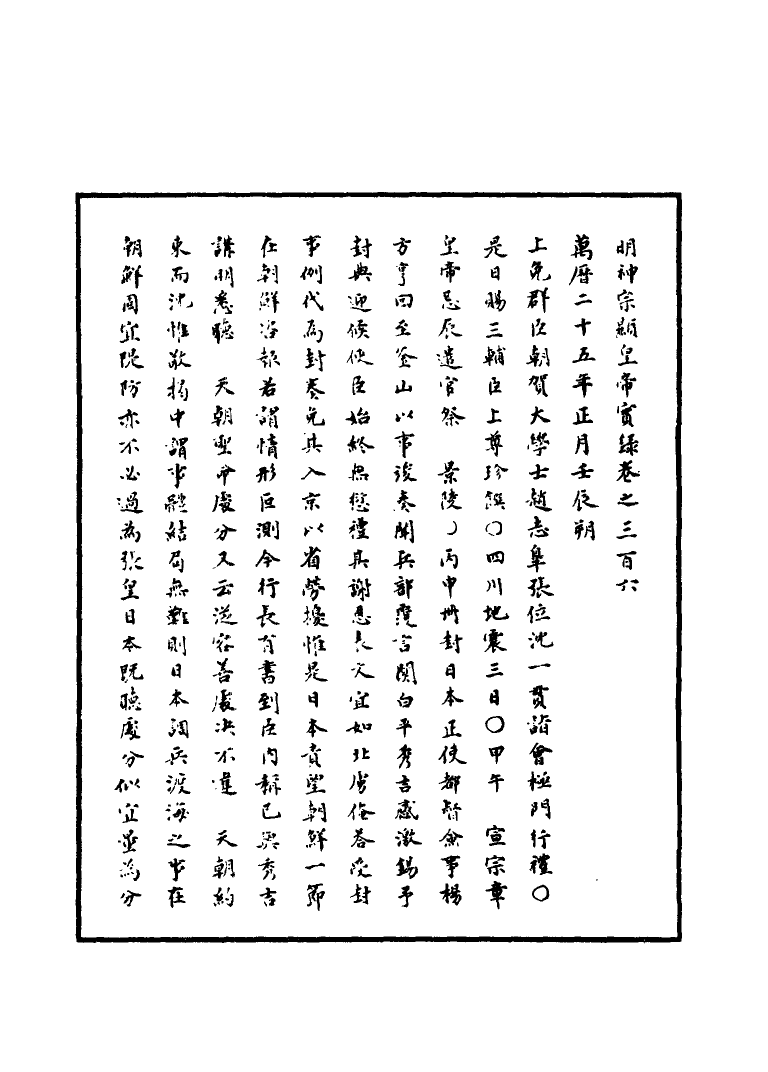 明神宗顯皇帝實錄卷之三百六
萬曆二十五年正月壬辰朔
上免群臣朝賀大學士趙志皐張位沈一貫詣會極門行禮〇
是日賜三輔臣上尊珍饌〇四川地震三日〇甲午　宣宗章
皇帝忌辰遣官祭　景陵〇丙申冊封日本正使都督僉事楊
方亨回至釜山以事竣奏聞兵部覆言關白平秀吉感激錫予
封典迎候使臣始終無愆禮其謝恩表文宜如北虜俺荅受封
事例代為封奏免其入京以省勞擾惟是日本責望朝鮮一節
在朝鮮咨報若謂情形叵測今行長有書到臣內稱已與秀吉
講明悉聽　天朝聖命處分又云從容善處决不違　天朝約
束而沈惟敬揭中謂事體結局無難則日本調兵渡海之事在
朝鮮固宜隄防亦不必過為張皇日本既聽處分似宜並為分